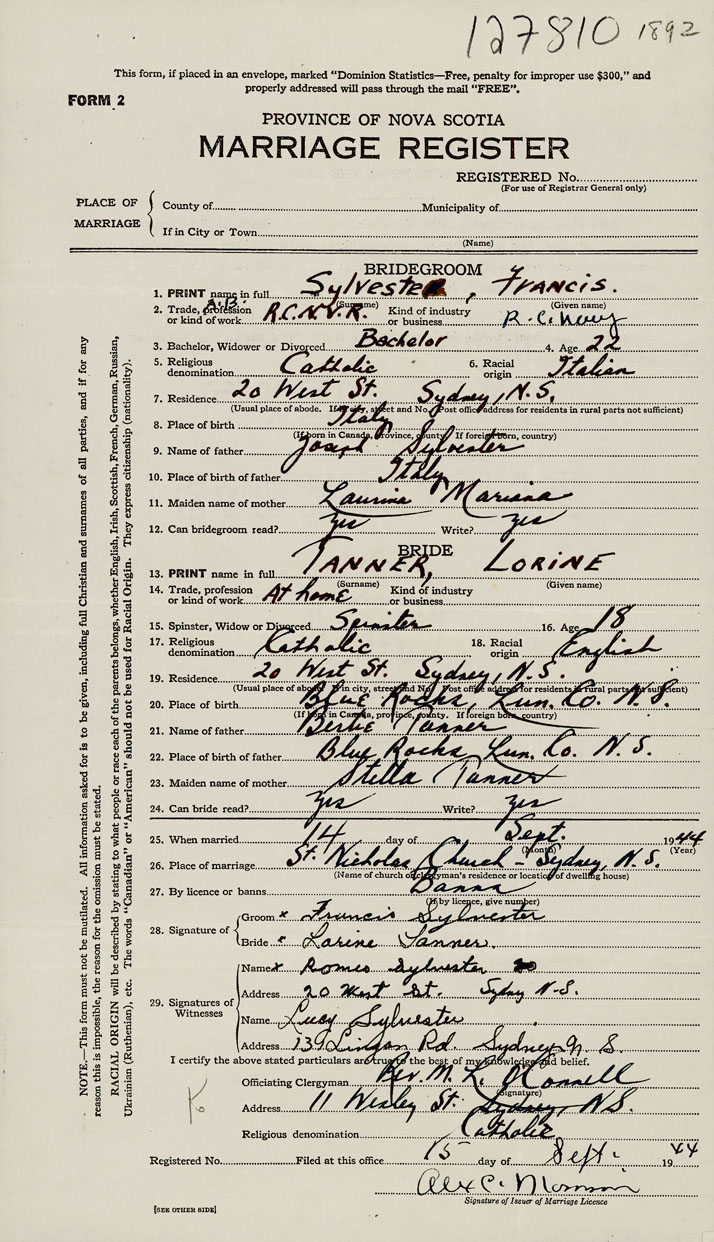 127810 1892
This form, if placed in an envelope, marked "Dominion Statistics—Free, penalty for improper use $300," and
properly addressed will pass through the mail "FREE".
FORM 2
PROVINCE OF NOVA SCOTIA
MARRIAGE REGISTER
REGISTERED No.
(For use of Registrar General only)
PLACE OF MARRIAGE
County of Municipality of
If in City or Town
(Name)
BRIDEGROOM
1. PRINT name in full Sylvester, Francis.
(Surname) (Given name)
2. Trade, profession or kind of work A.B. R.C.N.V.R. Kind of industry or business R.C. Navy
3. Bachelor, Widower or Divorced Bachelor 4. Age 22
5. Religious denomination Catholic 6. Racial origin Italian
7. Residence 20 West St. Sydney, N.S.
(Usual place of abode. If city, street and No. Post office address for residents in rural parts not sufficient)
8. Place of birth Italy
(If born in Canada, province, county. If foreign born, country)
9. Name of father Joseph Sylvester
10. Place of birth of father Italy
11. Maiden name of mother Laurina Mariana
12. Can bridegroom read? yes Write? yes
BRIDE
13. PRINT name in full TANNER, LORINE
(Surname) (Given name)
14. Trade, profession or kind of work At home Kind of industry or business
15. Spinster, Widow or Divorced Spinster 16. Age 18
17. Religious denomination Catholic 18. Racial origin English
19. Residence 20 West St. Sydney, N.S.
(Usual place of abode. If in city, street and No. Post office address for residents in rural parts not sufficient)
20. Place of birth Blue Rocks, Lun. Co. N.S.
(If born in Canada, province, county. If foreign born, country)
21. Name of father Bertie Tanner
22. Place of birth of father Blue Rocks, Lun. Co. N.S.
23. Maiden name of mother Stella Tanner
24. Can bride read? yes Write? yes
25. When married 14 day of Sept. 1944
(Month) (Year)
26. Place of marriage St. Nicholas Church - Sydney, N.S.
(Name of church or clergyman's residence or location of dwelling house)
27. By licence or banns Banns
(If by licence, give number)
28. Signature of
Groom x Francis Sylvester
Bride x Lorine Tanner.
29. Signatures of Witnesses
Name x Romeo Sylvester
Address 20 West St. Sydney N.S.
Name Lucy Sylvester
Address 139 Lingan Rd Sydney N.S.
I certify the above stated particulars are true to the best of my knowledge and belief.
Officiating Clergyman Rev. M. L. O'Connell
(Signature)
Address 11 Wesley St. Sydney, N.S.
Religious denomination Catholic
Registered No. Filed at this office 15 day of Sept. 1944
Alex C.
Signature of Issuer of Marriage Licence
[SEE OTHER SIDE]
NOTE.—This form must not be mutilated. All information asked for is to be given, including full Christian and surnames of all parties, and if for any
reason this is impossible, the reason for the omission must be stated.
RACIAL ORIGIN will be described by stating to what people or race each of the parents belongs, whether English, Irish, Scottish, French, German, Russian,
Ukrainian (Ruthenian), etc. The words "Canadian" or "American" should not be used for Racial Origin. They express citizenship (nationality).